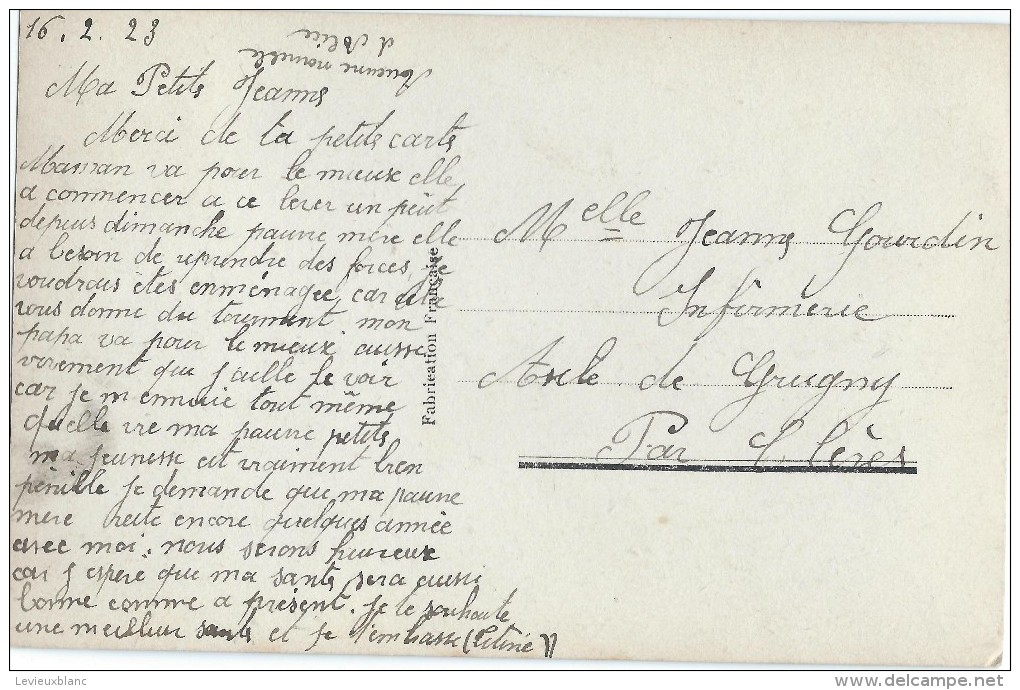 16. 2. 23
Aucune nouvelle
d Alice
Ma Petite Jeanne
Merci de ta petite carte
Maman va pour le mieux elle
a commencer a ce lever un peut
depuis dimanche pauvre mère elle
a besoin de reprendre des forces, je
voudrais êtes enménagee, car cela
vous donne du tourment, mon
papa va pour le mieux aussi
vivement que j'aille le voir
car je m'ennuie tout même
quelle vie ma pauvre petite
ma jeunesse est vraiment bien
pénible je demande que ma pauvre
mère reste encore quelques année
avec moi. nous serons heureux
car j espère que ma sante sera aussi
bonne comme a présent. Je te souhaite
une meilleur sante et je t'embasse
Melle Jeanne Gourdin
Infirmerie
Asile de Grugny
Par Clères
Fabrication Française
Levieuxblanc
delcampe.net